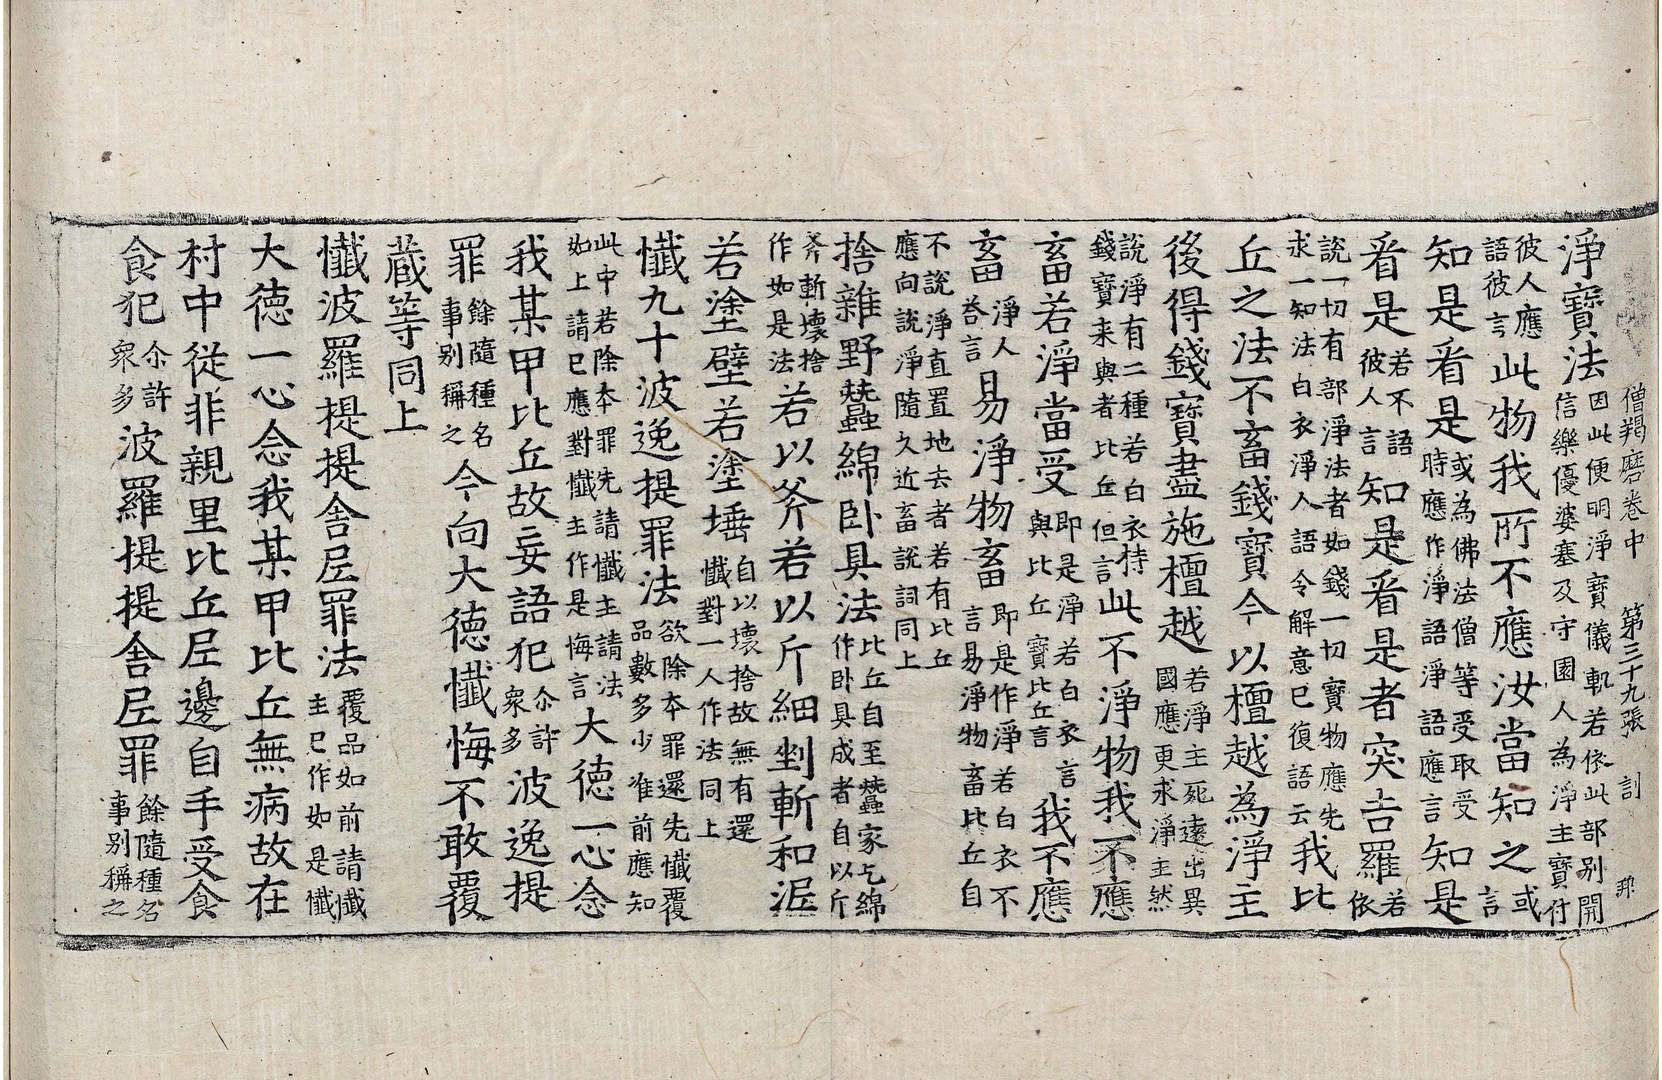 僧羯磨卷中　第三十九張　訓　那
淨寶法因此便明淨寶儀軌若依此部別開信樂優婆塞及守園人為淨主寶付
彼人應語彼言此物我所不應汝當知之或言
知是看是或為佛法僧等受取受時應作淨語淨語應言知是
看是若不語彼人言知是看是者突吉羅若依
說一切有部淨法者如錢一切寶物應先求一知法白衣淨人語令解意已復語云我比
丘之法不畜錢寶今以檀越為淨主
後得錢寶盡施檀越若淨主死遠出異國應更求淨主然
說淨有二種若白衣持錢寶来與者比丘但言此不淨物我不應
畜若淨當受即是淨若白衣言與比丘寶比丘言我不應
畜淨人荅言易淨物畜即是作淨若白衣不言易淨物畜比丘自
不說淨直置地去者若有比丘應向說淨隨久近畜說詞同上
捨雜野蠶綿卧具法比丘自至蠶家乞綿作卧具成者自以斤
斧斬壞捨作如是法若以斧若以斤細剉斬和泥
若塗壁若塗埵自以壞捨故無有還懺對一人作法同上
懺九十波逸提罪法欲除本罪還先懺覆品數多少准前應知
此中若除本罪先請懺主請法如上請已應對懺主作是悔言大德一心念
我某甲比丘故妄語犯尒許衆多波逸提
罪餘隨種名事別稱之今向大德懺悔不敢覆
蔵等同上
懺波羅提提舍尼罪法覆品如前請懺主已作如是懺
大德一心念我某甲比丘無病故在
村中從非親里比丘尼邊自手受食
食犯尒許衆多波羅提提舍尼罪餘隨種名事別稱之